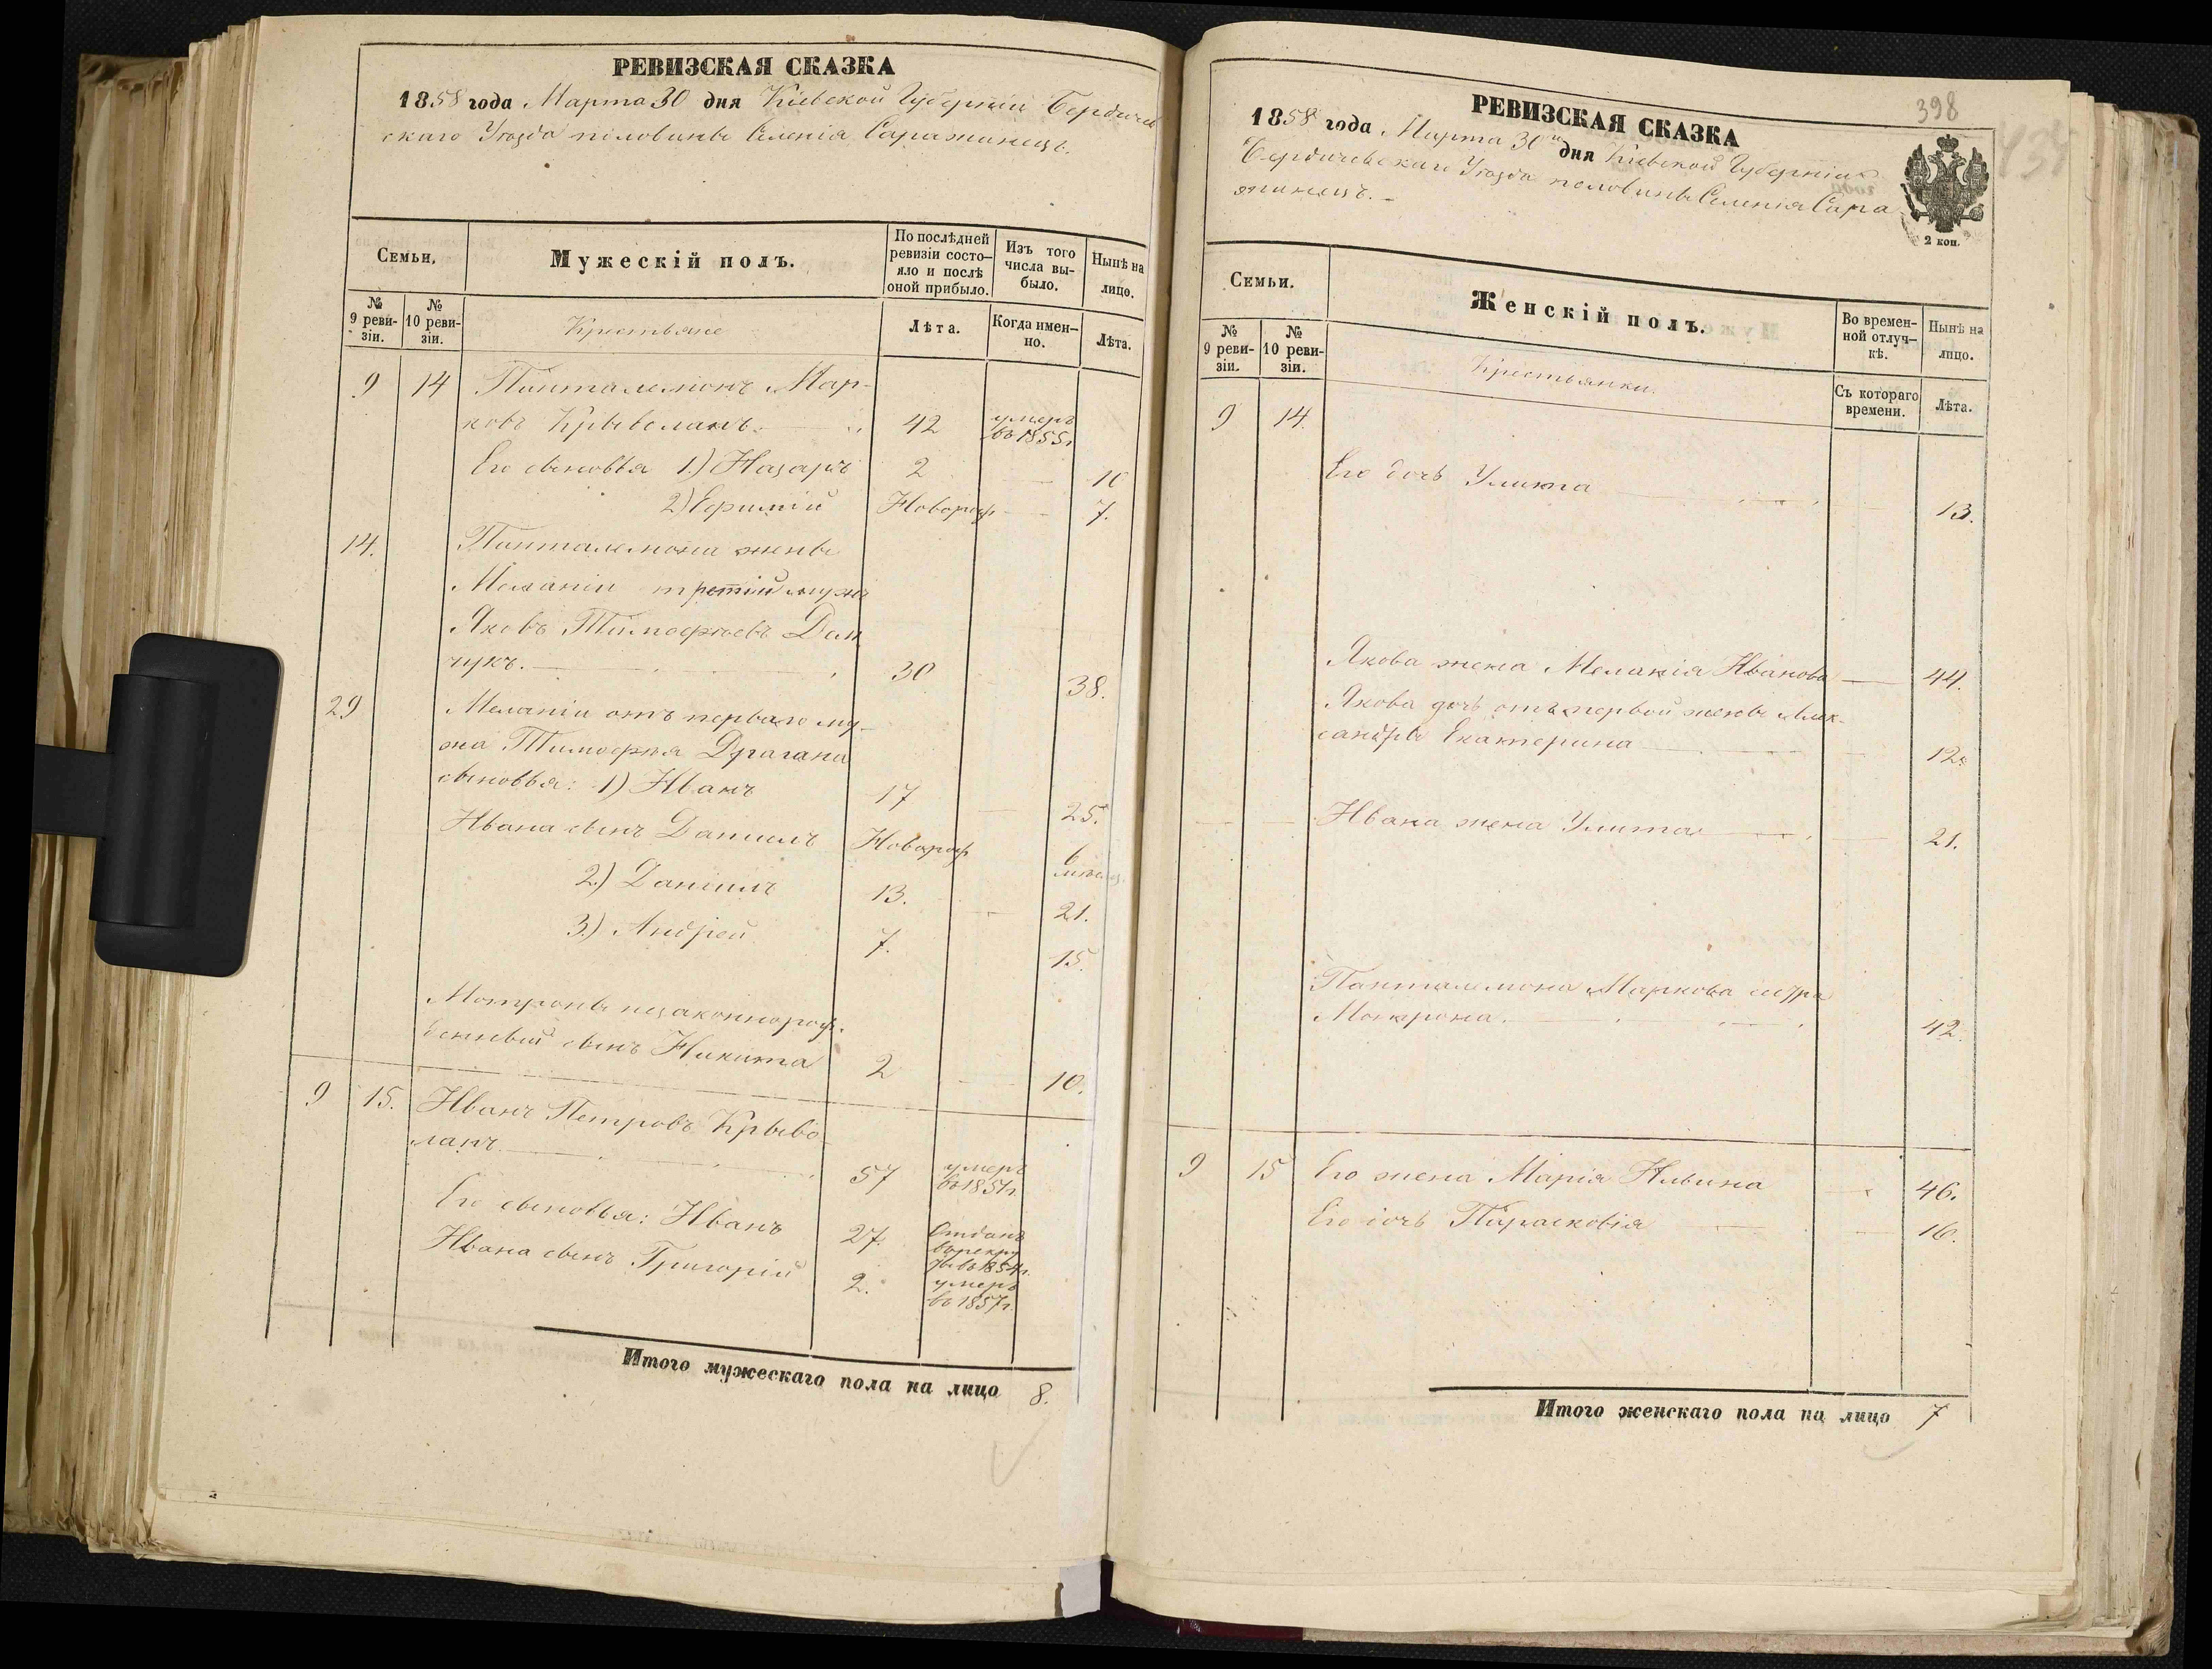 РЕВИЗСКАЯ СКАЗКА
1858 года Марта 30 дня Кіевской Губерніи Бердичев
скаго Уѣзда половины Селенія Саражинецъ.
Семьи.
Мужескій полъ.
По послѣдней
ревизіи состо-
яло и послѣ
оной прибыло.
Изъ того
числа вы-
было.
Нынѣ на
лицо.
№
9 реви-
зіи.
№
10 реви-
зіи.
Крестьяне
Лѣта.
Когда имен-
но.
Лѣта.
9 14 Панталемонъ Мар-
ковъ Крыволапъ 42 умеръ
въ 1855г
Его сыновья 1.) Назаръ 2 10
2) Новорож 7.
14. Панталемона жены
Меланіи третій мужъ
Яковъ Тимофѣевъ Дем
чукъ. 30 38.
29 Меланіи отъ перваго му-
жа Тимофѣя Драгана
сыновья: 1) Иванъ 17 25.
Ивана сынъ Даниилъ Новорож 6
мѣсяц.
2.) Даніилъ 13. 21.
3.) Андрей 7. 15.
Мотроны незаконнорож.
денный сынъ Никита 2 10.
9 15. Иванъ Петровъ Крыво-
лапъ 57 умеръ
въ 1851г.
Его сыновья: Иванъ 27. Отданъ
въ рекру
ты въ 1854г.
Ивана сынъ Григорій 2. умеръ
въ 1857г.
Итого мужескаго пола на лицо 8.
398
РЕВИЗСКАЯ СКАЗКА
1858 года Марта 30го дня Кіевской Губерніи
Бердичевскаго Уѣзда половины Селенія Сара
жинецъ.
2 коп.
Семьи.
Женскій полъ.
Во времен-
ной отлуч-
кѣ.
Нынѣ на
лицо.
№
9 реви-
зіи.
№
10 реви-
зіи.
Крестьянки.
Съ котораго
времени.
Лѣта.
9 14.
Его дочь Улита 13.
Якова жена Меланія Иванова 44.
Якова дочь отъ первой жены Алек-
сандры Екатерина 12.
Ивана жена Улита 21.
Панталемона Маркова сестра
Мотрона. 42.
9 15 Его жена Марія Ильина 46.
Его дочь Парасковія 16.
Итого женскаго пола на лицо 7